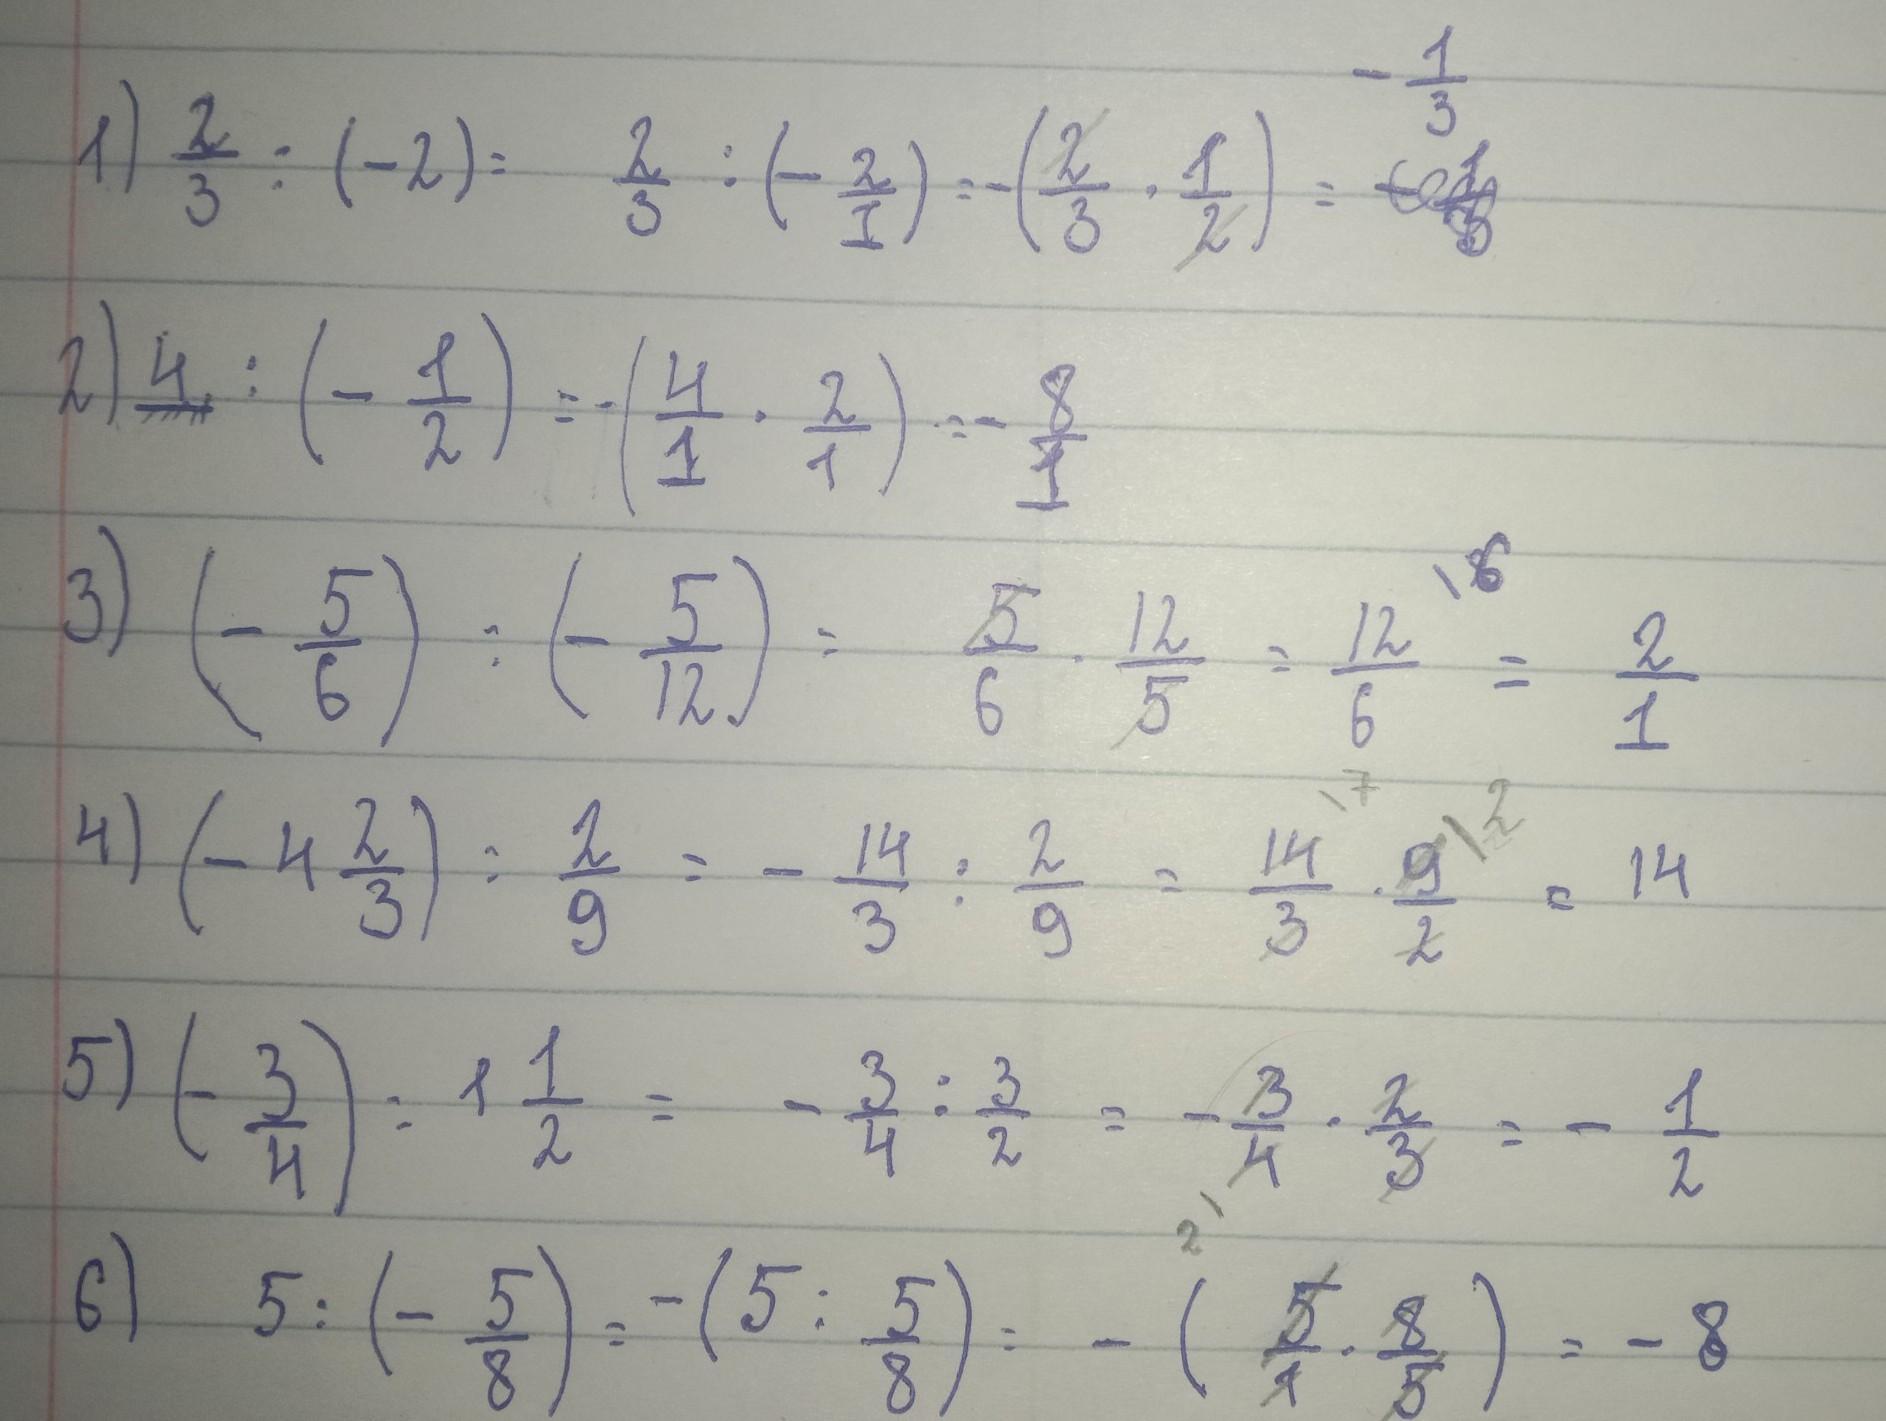 1) 2/3 : (-2) = 2/3 : (- 2/1) = -(2/3 · 1/2) = - 1/3
2) 4 : (- 1/2) = -(4/1 · 2/1) = - 8/1
3) (- 5/6) : (- 5/12) = 5/6 · 12/5 = 12/6 \6 = 2/1
4) (- 4 2/3) : 2/9 = - 14/3 : 2/9 = 14/3 \7 · 9/2 \2 = 14
5) (- 3/4) : 1 1/2 = - 3/4 : 3/2 = - 3/4 · 2/3 = - 1/2
2\
6) 5 : (- 5/8) = -(5 : 5/8) = - (5/1 · 8/5) = - 8